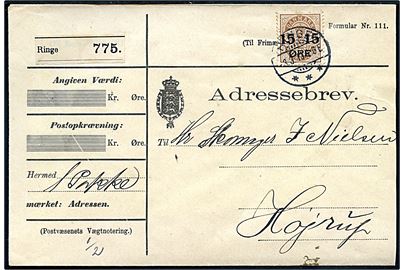 Formular Nr. 111.
Ringe 775.
(Til Frimær
15 15
ØRE
Angiven Værdi:
Kr. Øre.
Adressebrev.
Postopkrævning:
Kr. Øre.
Til Hr Skomager J Nielsen
Hermed
1 Pakke
mærket: Adressen.
Højrup
(Postvæsenets Vægtnotering.)
1/2